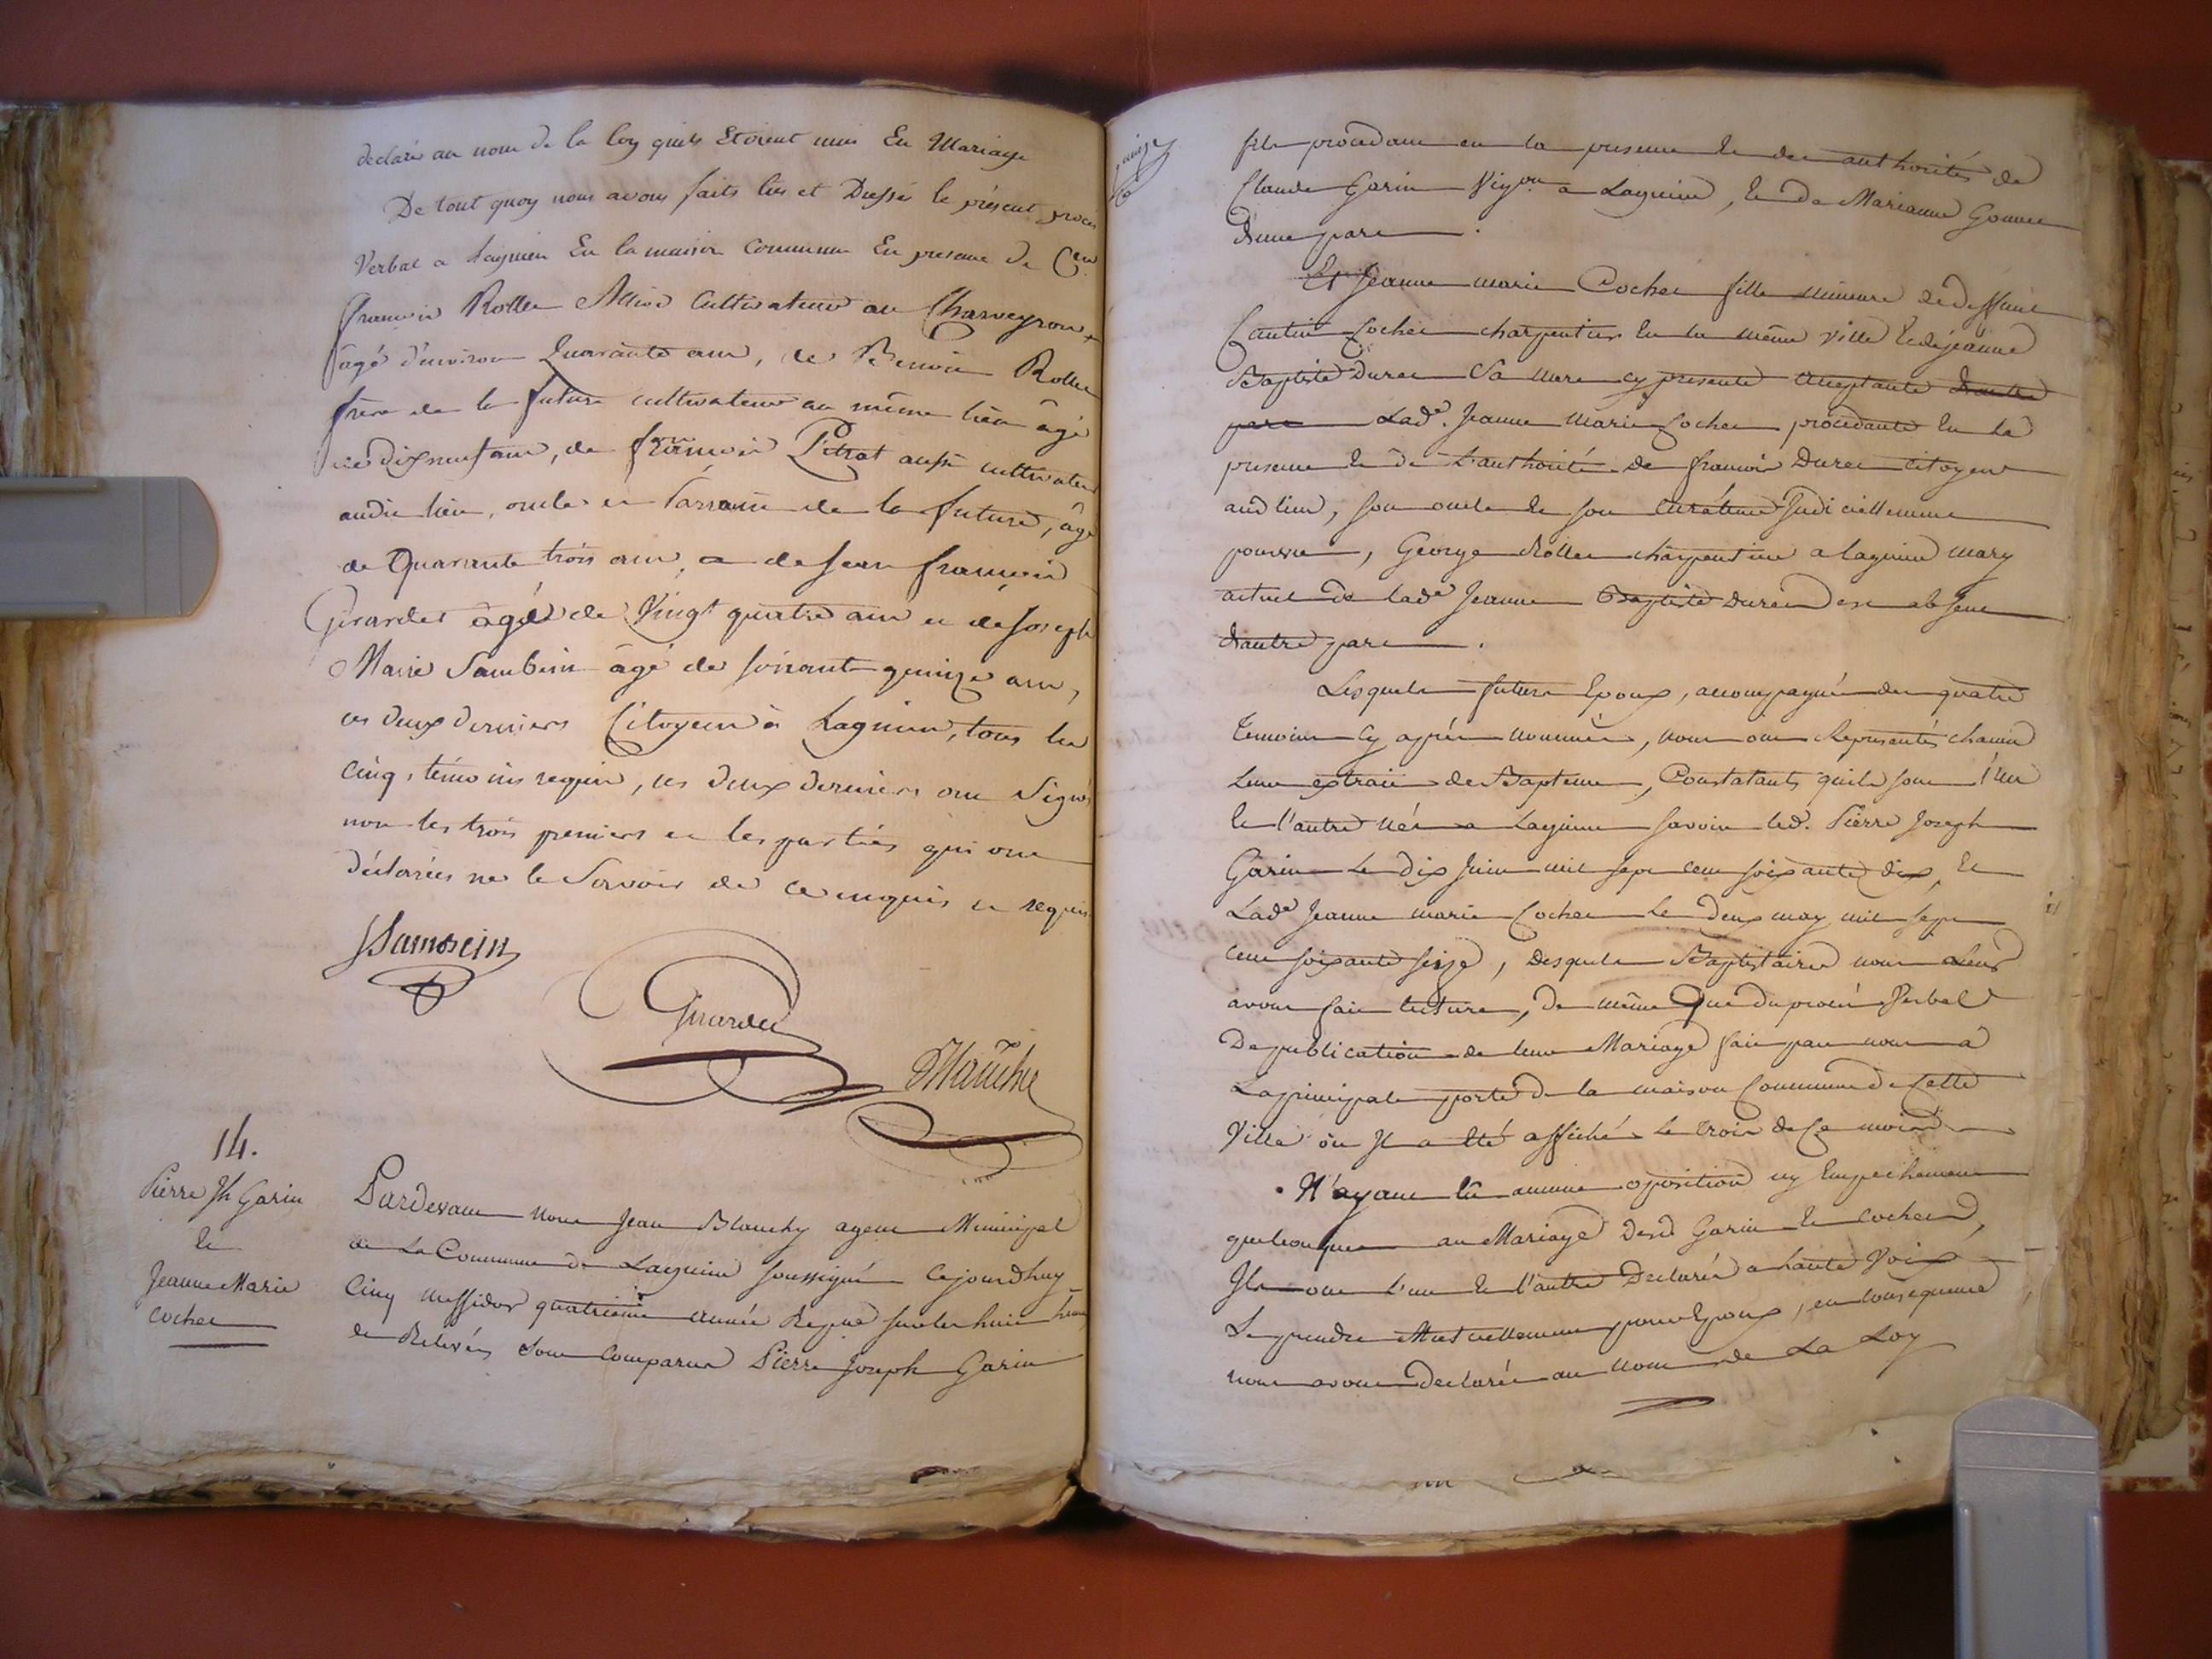 declaré au nom de la loy quils Etoient unis En Mariage
De tout quoy nous avons faits lire et Dressé le présent procés
Verbal a Lagnieu En la maison Commune En presence de Cen
francois Rollet Alliod Cultivateur au Charveyron
âgé d'environ Quarante ans, de Benoit Rollet
frère de la future cultivateur au même lieu âgé
de dixneuf ans, de françois Pitrat aussi cultivateur
audit lieu, oncle et Parrain de la future, âgé
de Quarante trois ans, et de Jean françois
Girardet âgé de Vingt quatre ans et de Joseph
Marie Sambein âgé de soixante quinze ans,
ces deux derniers Citoyens à Lagnieu, tous les
cinq témoins requis, les deux derniers ont Signés
non les trois premiers et les parties qui ont
déclarées ne le Savoir de ce enquis et requis
JSambein
Girardet
Blanchy
14.
Pierre Jh Garin
Et
Jeanne Marie
Cochet
Pardevant Nous Jean Blanchy agent Municipal
de La Commune de Lagnieu soussigné Cejourdhuy
Cinq messidor quatrième année Repue sur les huit heures
de Relevée Sont Comparus Pierre Joseph Garin
fils procedant en la presence Et des authorités de
Claude Garin Vigon a Lagnieu, Et de Marianne Gonnet
d'une part.
Et Jeanne marie Cochet fille mineure de deffunt
Cochet charpentier En la même ville Et de jeanne
Baptiste Duret Sa mere cy presente acceptante d'autre
part Lade. Jeanne Marie Cochet procedante En la
presence Et de L'authorité de francois Duret citoyen
aud lieu, son oncle Et son Curateur Judiciellement
pourvu, George Rollet charpentier a lagnieu mary
actuel de lade Jeanne Baptiste Duret est absent
d'autre part.
Lesquels futurs Epoux, accompagnés des quatre
temoins Cy après nommés, nous ont Representés chacun
Leur extrait de Bapteme, Constatants quils sont l'un
Et l'autre Nés a Lagnieu savoir led. Pierre Joseph
Garin Le dix Juin mil sept cent soixante dix, Et
Lade Jeanne marie Cochet Le deux may mil sept
cent soixante seize, desquels Baptistaires nous Leur
avons fait lecture, de même Que du procés Verbal
De publication de leur Mariage fait par nous a
La principale porte de la maison Commune de Cette
Ville où Il a Eté affiché Le trois de Ce mois
N'ayant Eu aucune oposition ny Empechement
quelconque au Mariage desd Garin Et Cochet,
Ils ont l'un Et l'autre Declarés a haute Voix
Se prendre Mutuellement pour Epoux, en consequence
nous avons declaré au Nom de La Loy